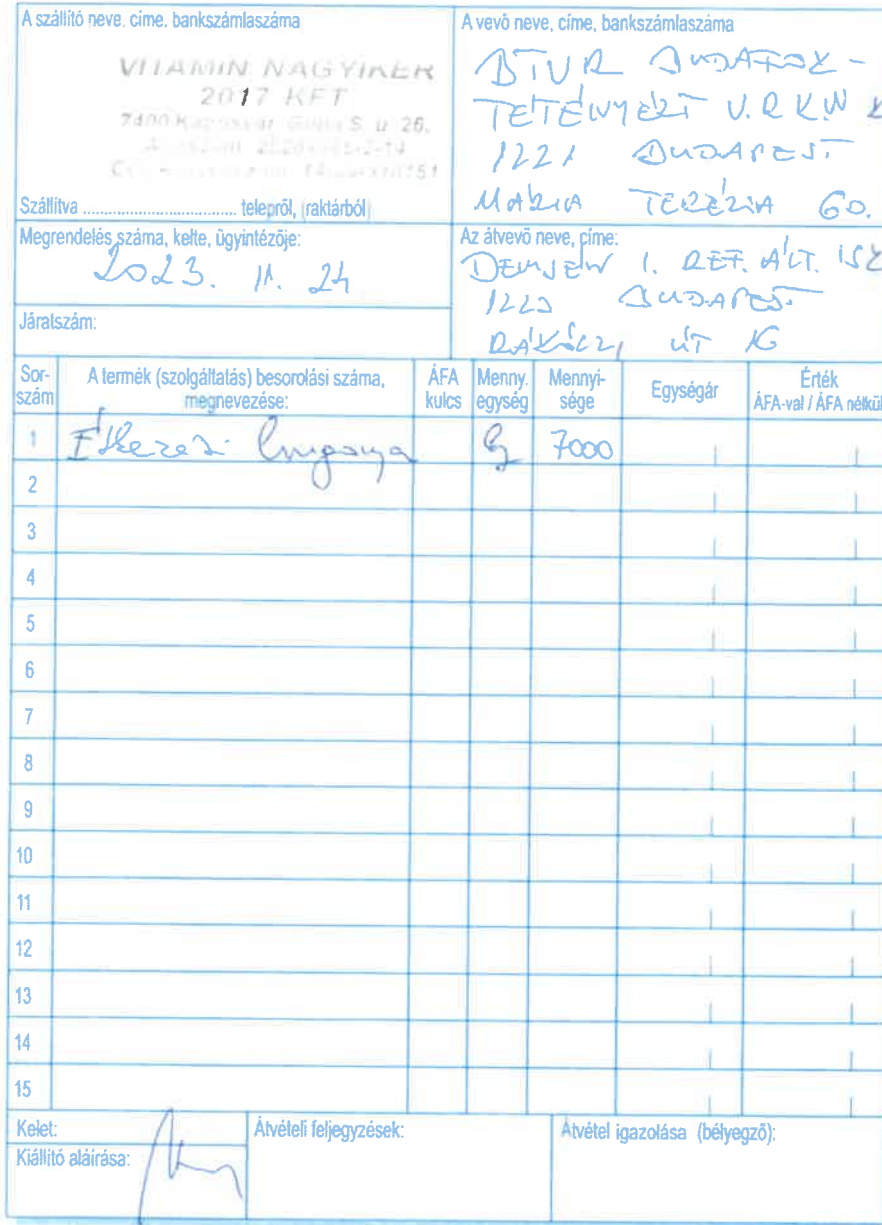 A szállító neve, címe, bankszámlaszáma
VITAMIN NAGYKER
2017 KFT
7400 Kaposvár S. u. 26.
Szállítva .................................... telepről, (raktárból)
A vevő neve, címe, bankszámlaszáma
BTVR BUDAFOK-
TÉTÉNYÉRT V.R.K.N
1221 BUDAPEST
MÁRIA TERÉZIA 60.
Megrendelés száma, kelte, ügyintézője:
2023. 11. 24
Az átvevő neve, címe:
1. REF. ÁLT. ISK
BUDAPEST
RÁKÓCZI ÚT 16
Járatszám:
Sor-szám A termék (szolgáltatás) besorolási száma, megnevezése: ÁFA kulcs Menny. egység Mennyi-sége Egységár Érték ÁFA-val / ÁFA nélkül
1 Étkezési burgonya 7000
2
3
4
5
6
7
8
9
10
11
12
13
14
15
Kelet:
Kiállító aláírása:
Átvételi feljegyzések:
Átvétel igazolása (bélyegző):